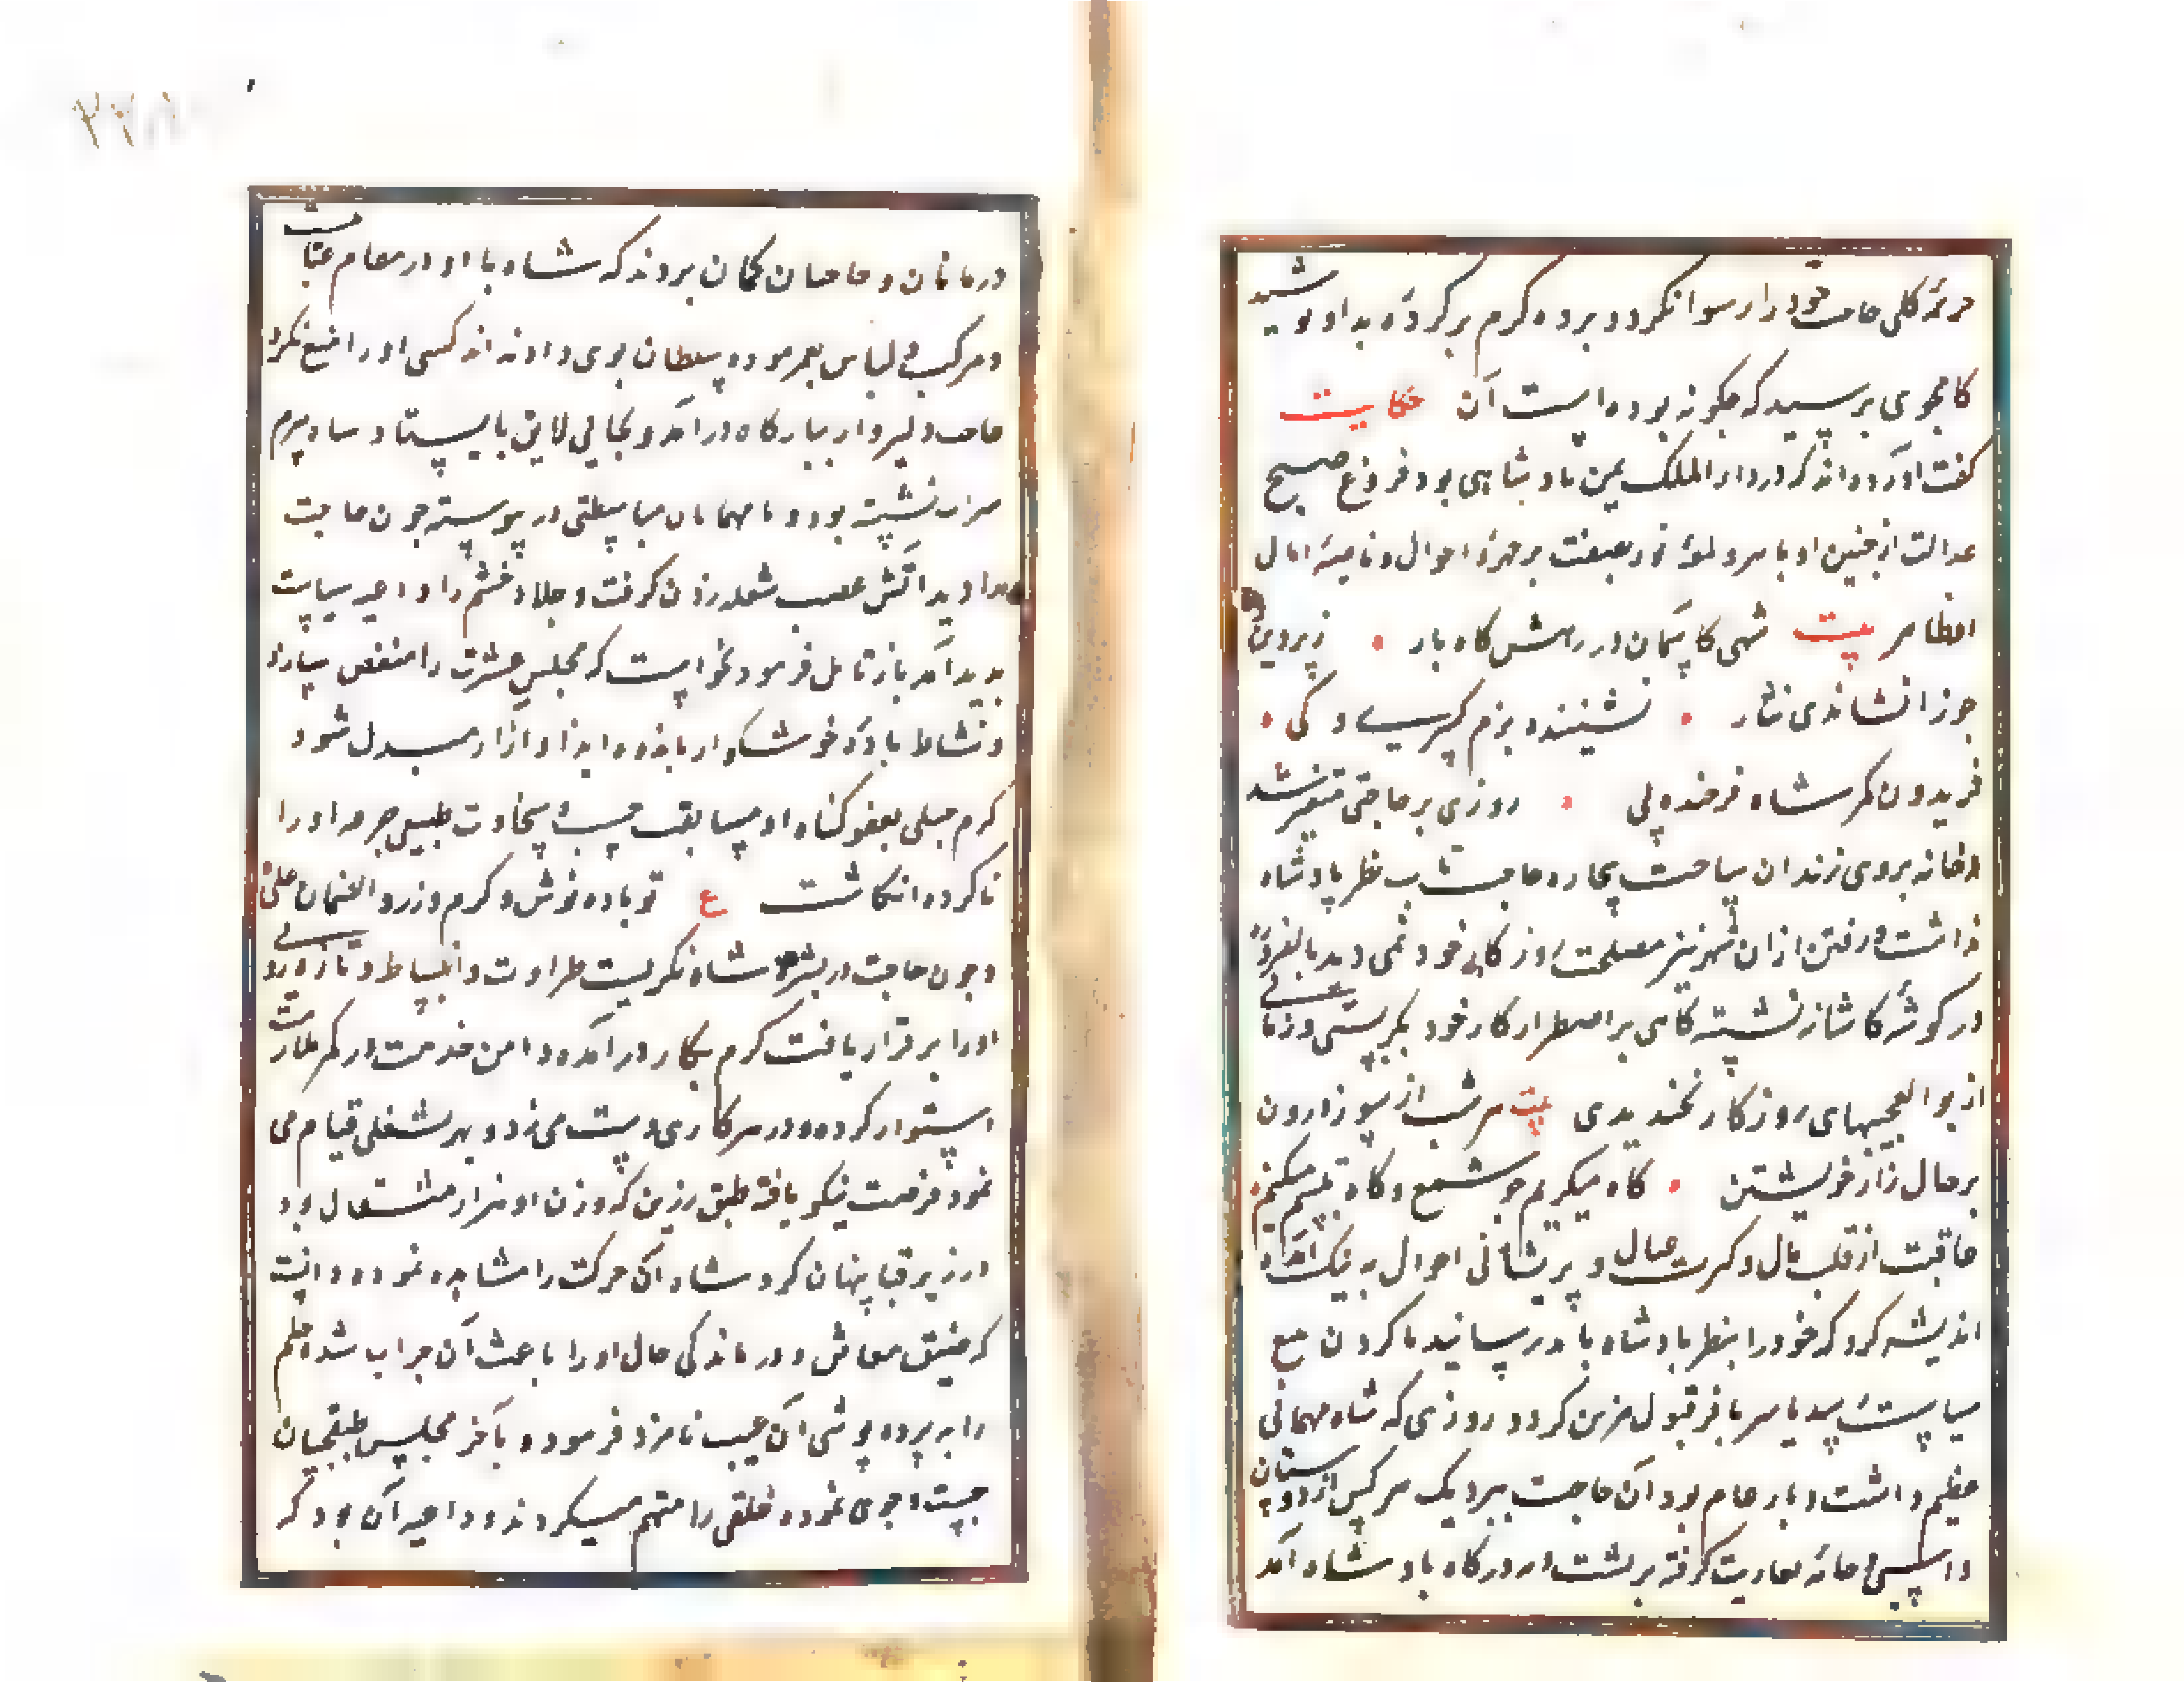 جرمهٔ کلی حاجب خود را رسوا نکرد و پرده کرم بر کردهٔ بد او پوشید
کامجوی پرسید که چگونه بوده است آن حکایت
گفت آورده‌اند که در دار الملک یمن پادشاهی بود فروغ صبح
عدالت از جبین او باهر و لمعهٔ نور بر چهرهٔ احوال و ناصیهٔ امال
او ظاهر بیت شهی کاسمان در رامش گاه بار • ز پروین و
جوزا فشاندی نثار • نشیننده بزم کرسی و کی •
فریدون کمر شاه فرخنده پی • روزی بر حاجبی متغیر شد
و خانه بروی زندان ساخت بیچاره حاجب تاب نظر پادشاه
نداشت و رفتن از آن شهر نیز مصلحت روزگار خود نمی دید بالضروره
در گوشهٔ کاشانه نشسته گاهی بر اضطرار کار خود بگریستی و زمانی
از بو العجبیهای روزگار بخندیدی بیت هر شب از سوز درون
بر حال زار خویشتن • گاه میگریم چو شمع و گاه تبسم میکنم •
عاقبت از قلت مال و کثرت عیال و پریشانی احوال به تنگ آمده
اندیشه کرد که خود را بنظر پادشاه باید رسانید یا گردن به تیغ
سیاست سپرد یا سر بافسر قبول مزین کرد و روزی که شاه مهمانی
عظیم داشت و بار عام بود آن حاجب نزدیک هر کس از دوستان
و اسپی و جامهٔ بعاریت گرفته بر نشست و بر درگاه پادشاه آمد
دربانان و حاجبان گمان بردند که شاه با او در مقام عنایتست
و مرکب و لباس بفرموده سلطان بوی داده‌اند کسی او را منع نکرد
حاجب دلیروار ببارگاه درآمد و بجایی لایق بایستاد شاه ببزم
شراب نشسته بود و با مهمانان مباسطتی در پیوسته چون حاجب
را دید آتش غضب شعله زدن گرفت و جلاد خشم را داعیه سیاست
پدید آمد باز تامل فرمود نخواست که مجلس عشرت را منغص سازد
و نشاط بادهٔ خوشگوار باندوه ایذا و آزار مبدل شود
کرم جبلی بعفو گناه او مسابقت جست و سخاوت طبیعی جرم او را
ناکرده انگاشت ع تو باده نوش و کرم ورز و الضمان علی
و چون حاجب در بشرهٔ شاه نگریست طراوت و انبساط و تازه رویی
او را برقرار یافت گرم بکار درآمده دامن خدمت در کمر طاعت
استوار کرده و در هر کاری دست می زد و بهر شغلی قیام می
نمود فرصت نیکو یافته طبق زرین که وزن او هزار مثقال بود
در زیر قبا پنهان کرد شاه آن حرکت را مشاهده نموده دانست
که ضیق معاش و درماندگی حال او را باعث آن جرات شده حلم
را به پرده پوشی آن عیب نامزد فرموده و بآخر مجلس طبقچیان
جست و جوی نموده خلقی را متهم میکردند و داعیه آن بود که